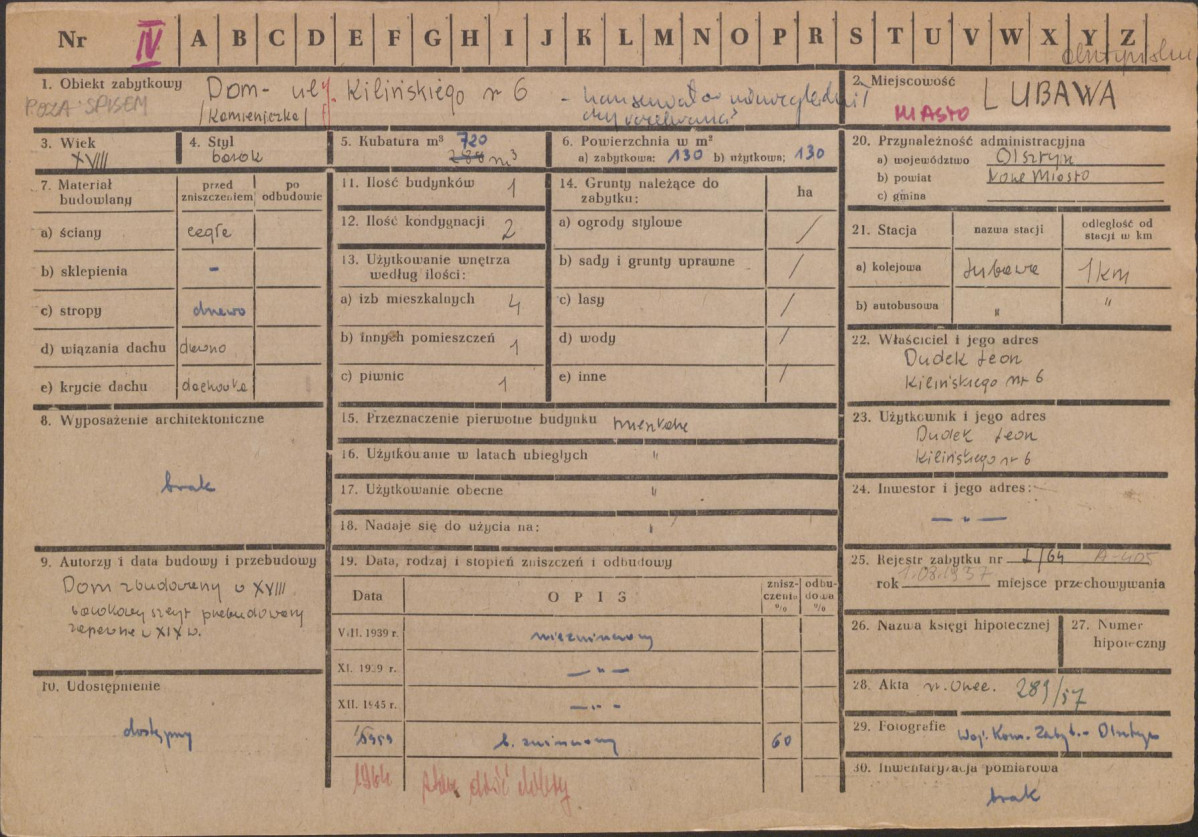 Nr IV A B C D E F G H I J K L M N O P R S T U V W X Y Z
1. Obiekt zabytkowy Dom - ul. Kilińskiego nr 6
POZA SPISEM /Kamieniczka/
2. Miejscowość LUBAWA
MIASTO
3. Wiek
XVIII
4. Styl
barok
5. Kubatura m³ 720
288 m³
6. Powierzchnia w m²
a) zabytkowa: 130 b) użytkowa: 130
7. Materiał budowlany
przed zniszczeniem
po odbudowie
a) ściany cegła
b) sklepienia -
c) stropy drewno
d) wiązania dachu drewno
e) krycie dachu dachówka
8. Wyposażenie architektoniczne
brak
9. Autorzy i data budowy i przebudowy
Dom zbudowany w XVIII
barokowy szczyt przebudowany
zapewne w XIX w.
10. Udostępnienie
dostępny
11. Ilość budynków 1
12. Ilość kondygnacji 2
13. Użytkowanie wnętrza
według ilości:
a) izb mieszkalnych 4
b) innych pomieszczeń 1
c) piwnic 1
14. Grunty należące do
zabytku: ha
a) ogrody stylowe /
b) sady i grunty uprawne /
c) lasy /
d) wody /
e) inne /
15. Przeznaczenie pierwotne budynku mieszkalne
16. Użytkowanie w latach ubiegłych "
17. Użytkowanie obecne "
18. Nadaje się do użycia na: "
19. Data, rodzaj i stopień zniszczeń i odbudowy
Data OPIS zniszczenia % odbudowa %
VIII. 1939 r. niezniszczony
XI. 1939 r. — " —
XII. 1945 r. — " —
1959 b. zniszczony 60
1964 stan dość dobry
20. Przynależność administracyjna
a) województwo Olsztyn
b) powiat Nowe Miasto
c) gmina
21. Stacja
nazwa stacji
odległość od
stacji w km
a) kolejowa Lubawa 1 km
b) autobusowa " "
22. Właściciel i jego adres
Dudek Leon
Kilińskiego nr 6
23. Użytkownik i jego adres
Dudek Leon
Kilińskiego nr 6
24. Inwestor i jego adres:
— " —
25. Rejestr zabytku nr I/64 A-405
rok 1.08.1957 miejsce przechowywania
26. Nazwa księgi hipotecznej
27. Numer
hipoteczny
28. Akta 289/57
29. Fotografie Woj. Kons. Zabyt. - Olsztyn
30. Inwentaryzacja pomiarowa
brak